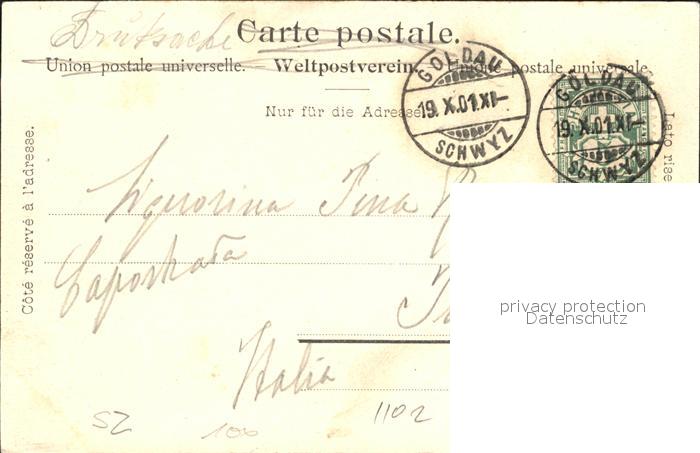 Drucksache
Carte postale.
Union postale universelle. Weltpostverein. Unione postale universale.
Nur für die Adresse
GOLDAU
19. X. 01. XI–
SCHWYZ
GOLDAU
19. X. 01. XI–
SCHWYZ
Côté réservé à l'adresse.
Lato rise
Signorina Pina
Italia
SZ
100
1102
privacy protection
Datenschutz